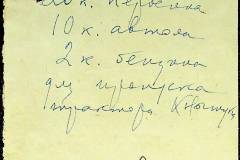 к. керосина
10 к. автола
2 к. бензина
для пропуска
трактора